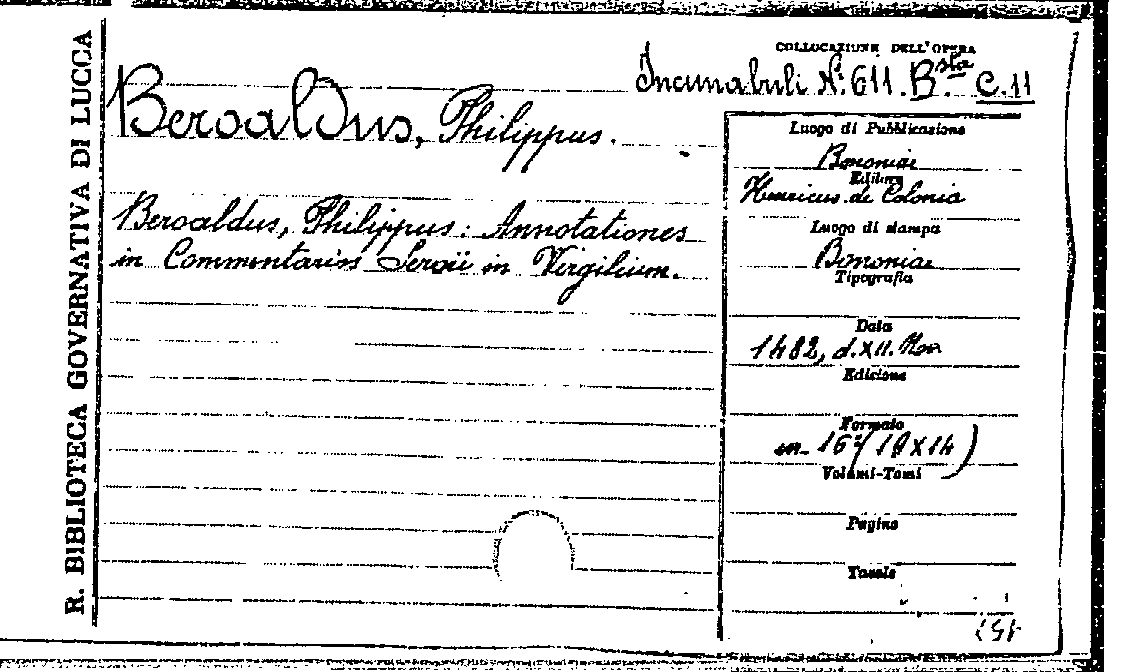 R. BIBLIOTECA GOVERNATIVA DI LUCCA
COLLOCAZIONE DELL'OPERA
Incunabuli N.° 611. Bsta C.11
Beroaldus, Philippus.
Beroaldus, Philippus: Annotationes
in Commentarios Servii in Virgilium.
Luogo di Pubblicazione
Bononiae
Editore
Henricus de Colonia
Luogo di stampa
Bononiae
Tipografia
Data
1482, d. XII. Nov
Edizione
Formato
in-16° (19X14)
Volumi-Tomi
Pagine
Tavole